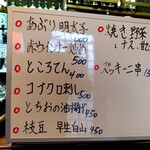 あぶり明太子
400
赤ウインナー炒め
500
ところてん
400
コブクロ刺し
500
とちおの油揚げ
450
枝豆 早生白山 450
焼き野菜
ナス.
ズッキーニ串